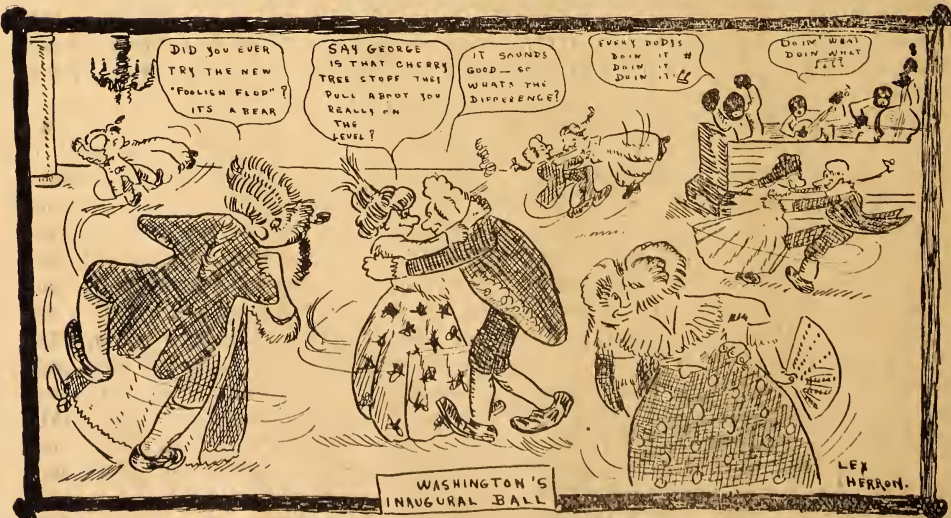 DID YOU EVER
TRY THE NEW
"FOOLISH FLOP"?
ITS A BEAR
SAY GEORGE
IS THAT CHERRY
TREE STUFF THEY
PULL ABOUT YOU
REALLY ON
THE
LEVEL?
IT SOUNDS
GOOD — SO
WHATS THE
DIFFERENCE?
EVERY BODYS
DOIN IT
DOIN IT
DOIN IT!!
DOIN' WHAT
DOIN WHAT
WASHINGTON'S
INAUGURAL BALL
LEX
HERRON.